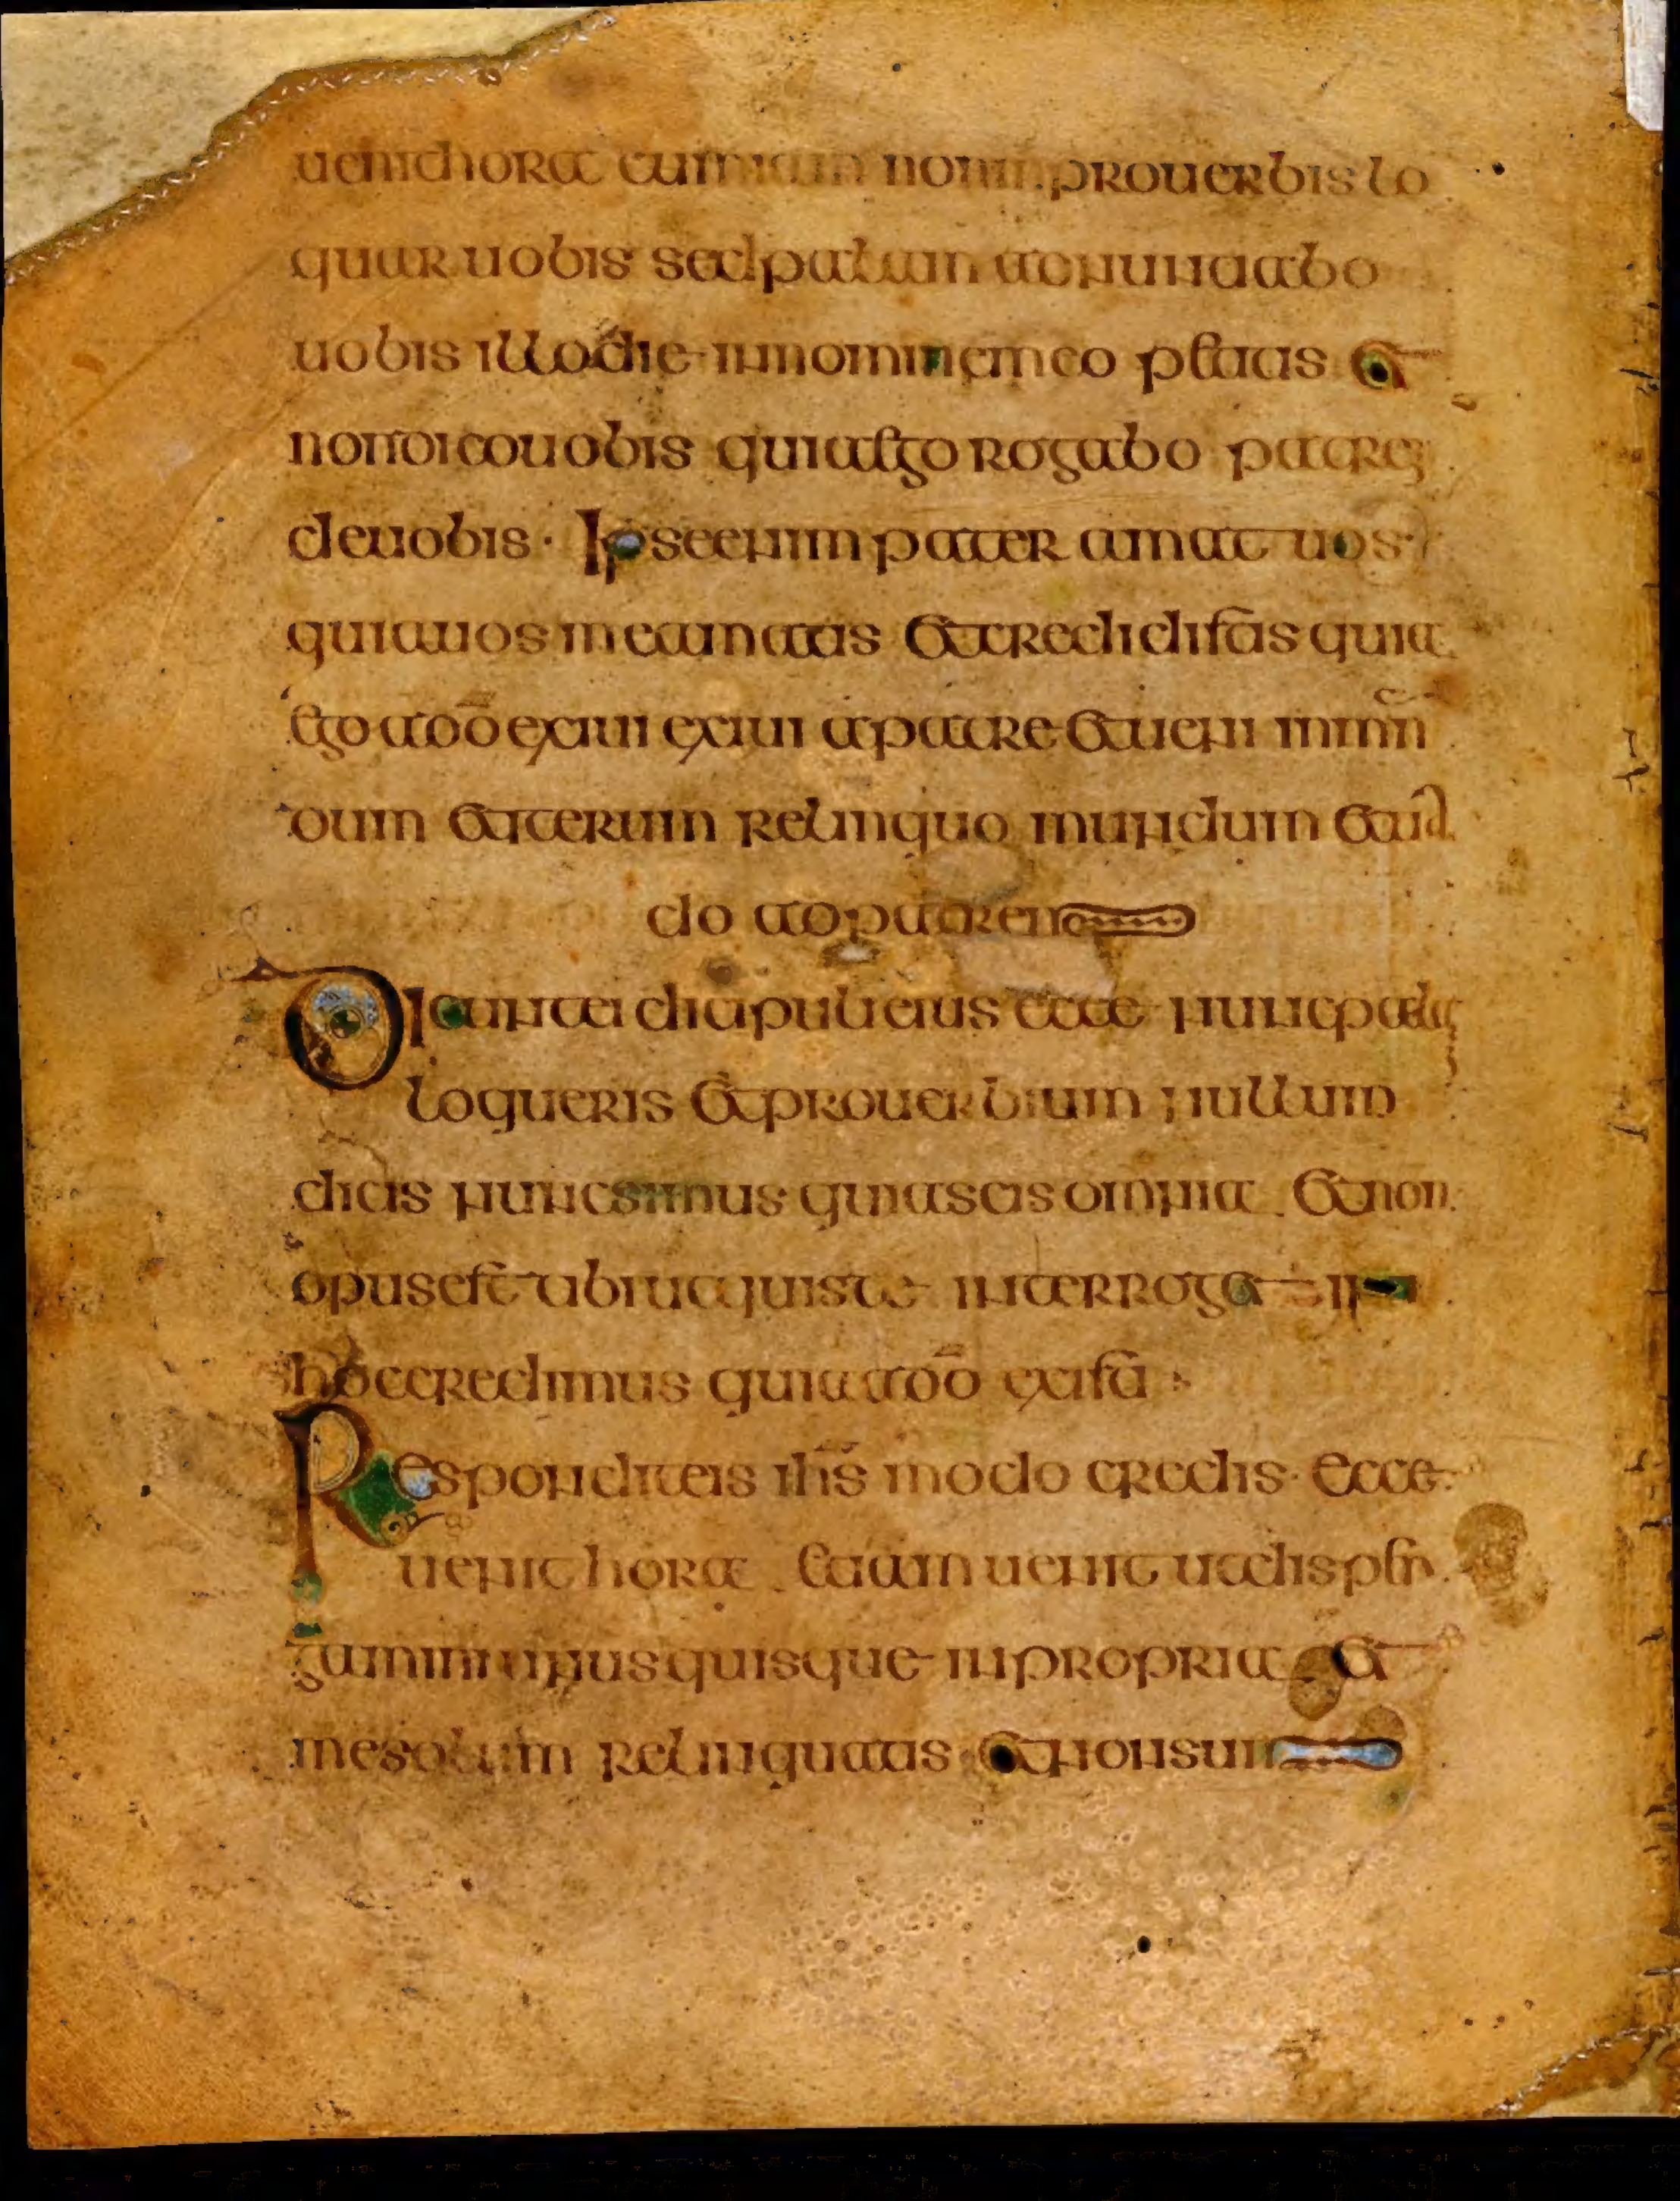 uenit hora cum iam non in prouerbis lo
quar uobis sed palam adnuntiabo
uobis illo die in nomine meo petitis et
non dico uobis quia ego rogabo patrem
de uobis · Ipse enim pater amat uos ·
quia uos me amatis et credidistis quia
ego a dō exiui exiui a patre et ueni in mun
dum et iterum relinquo mundum et ua
do ad patrem
Dicunt ei discipuli eius ecce nunc palam
loqueris et prouerbium nullum
dicis nunc scimus quia scis omnia et non
opus est tibi ut quis te interroget in
hoc credimus quia a dō existi
Respondit eis ihs modo credis · Ecce
uenit hora et iam uenit ut dispern
gamini unusquisque in propria et
me solum relinquatis et non sum